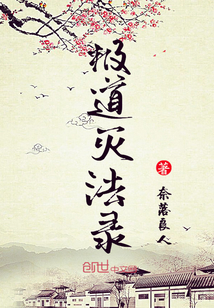 报道灭法录
著
奈落良人
创世中文网